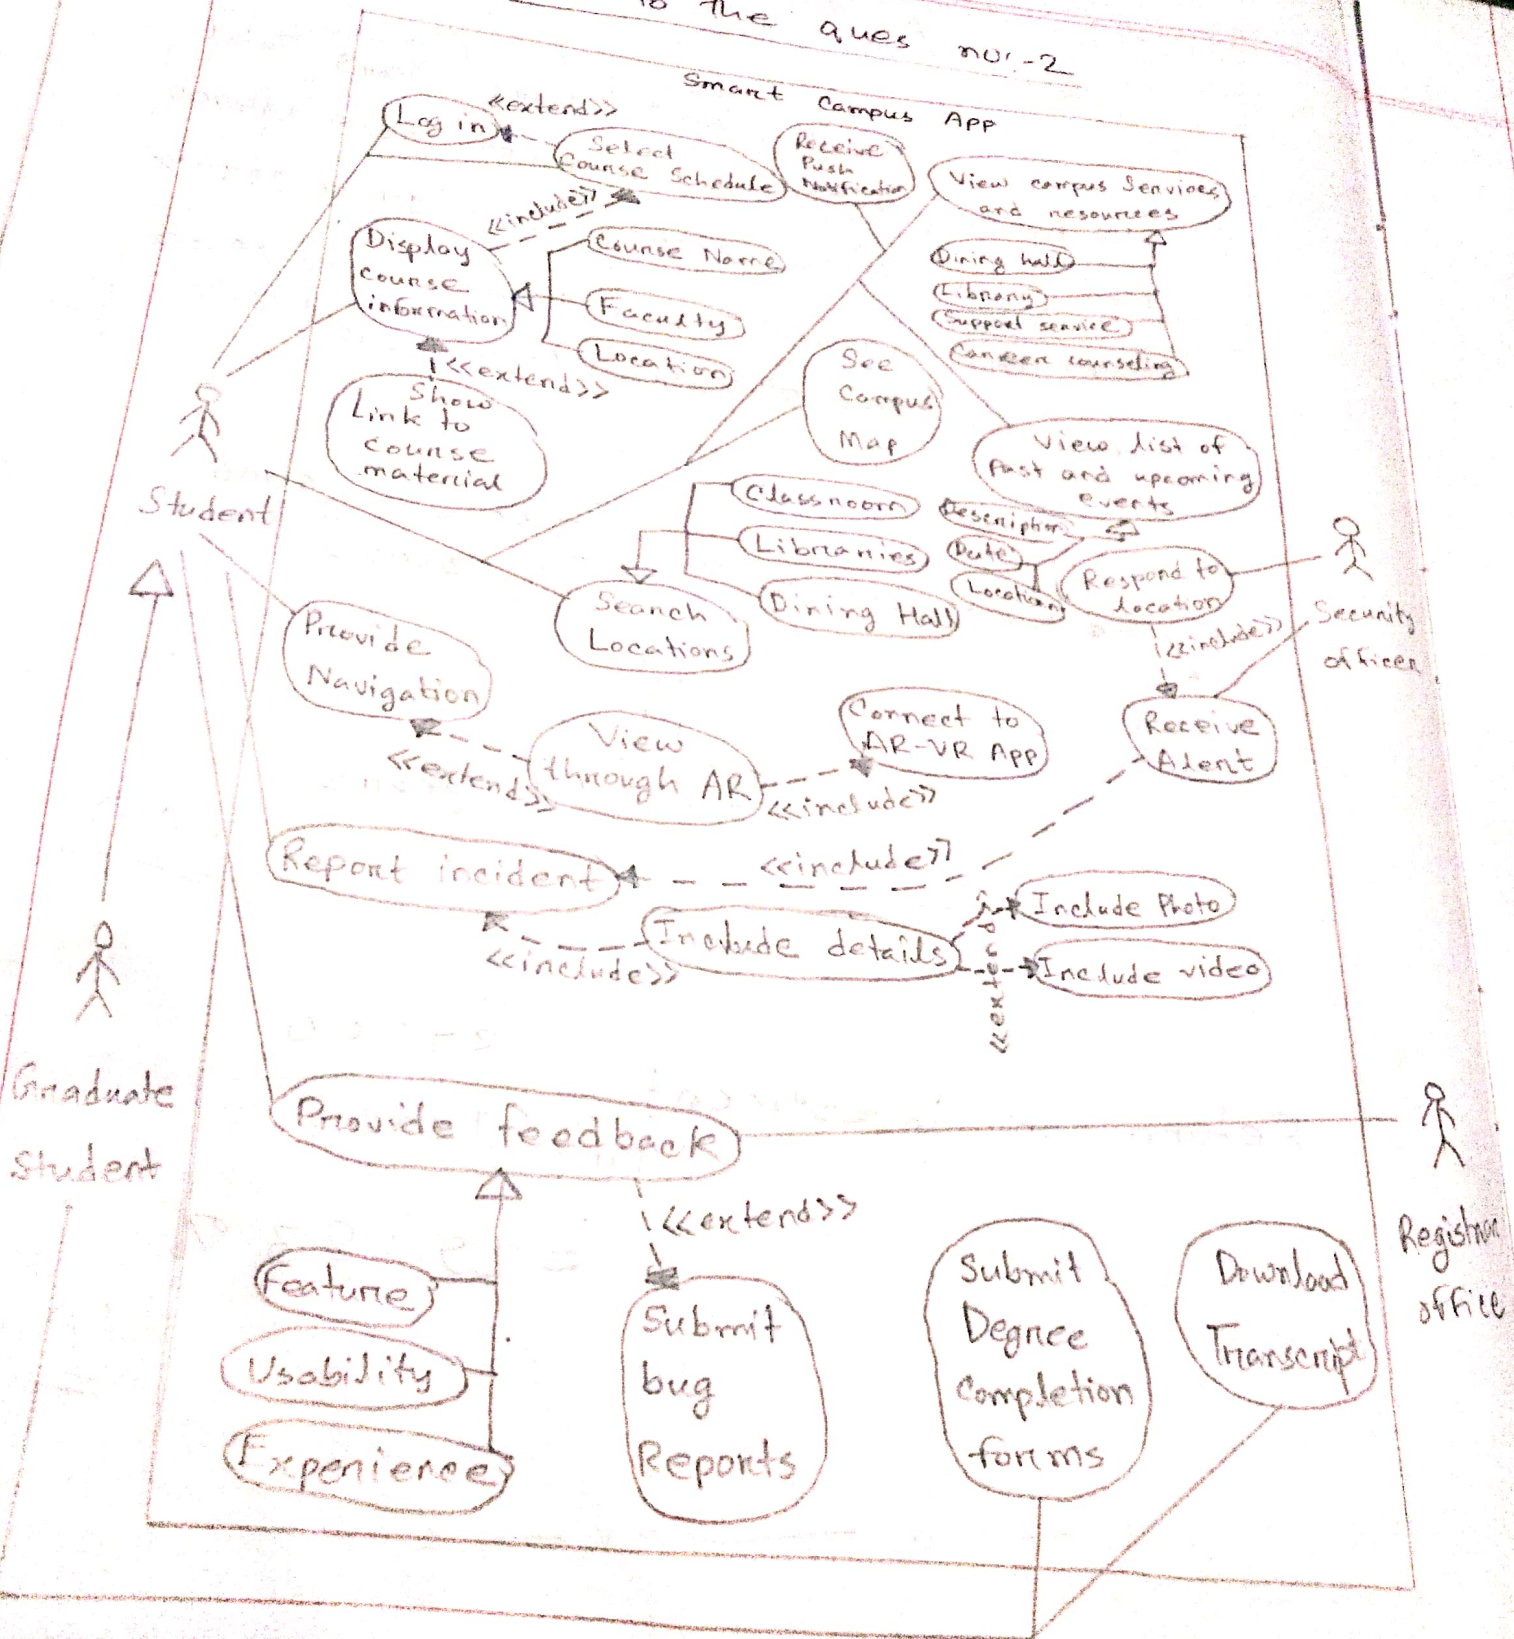 to the ques no:-2
Smart Campus App
Log in
<<extend>>
Select
Course Schedule
Receive
Push
Notification
View campus Services
and resources
<<include>>
Display
course
information
Course Name
Faculty
Location
Dining hall
Library
Support service
Career counseling
<<extend>>
Show
Link to
course
material
See
Campus
Map
View list of
Past and upcoming
events
Student
Classroom
Libraries
Dining Hall
Description
Date
Location
Respond to
location
Security
officer
<<include>>
Search
Locations
Provide
Navigation
<<extend>>
View
through AR
<<include>>
Connect to
AR-VR App
Receive
Alert
Report incident
<<include>>
Include details
<<include>>
<<extend>>
Include Photo
Include video
Graduate
Student
Provide feedback
<<extend>>
Feature
Usability
Experience
Submit
bug
Reports
Submit
Degree
Completion
forms
Download
Transcript
Registrar
office